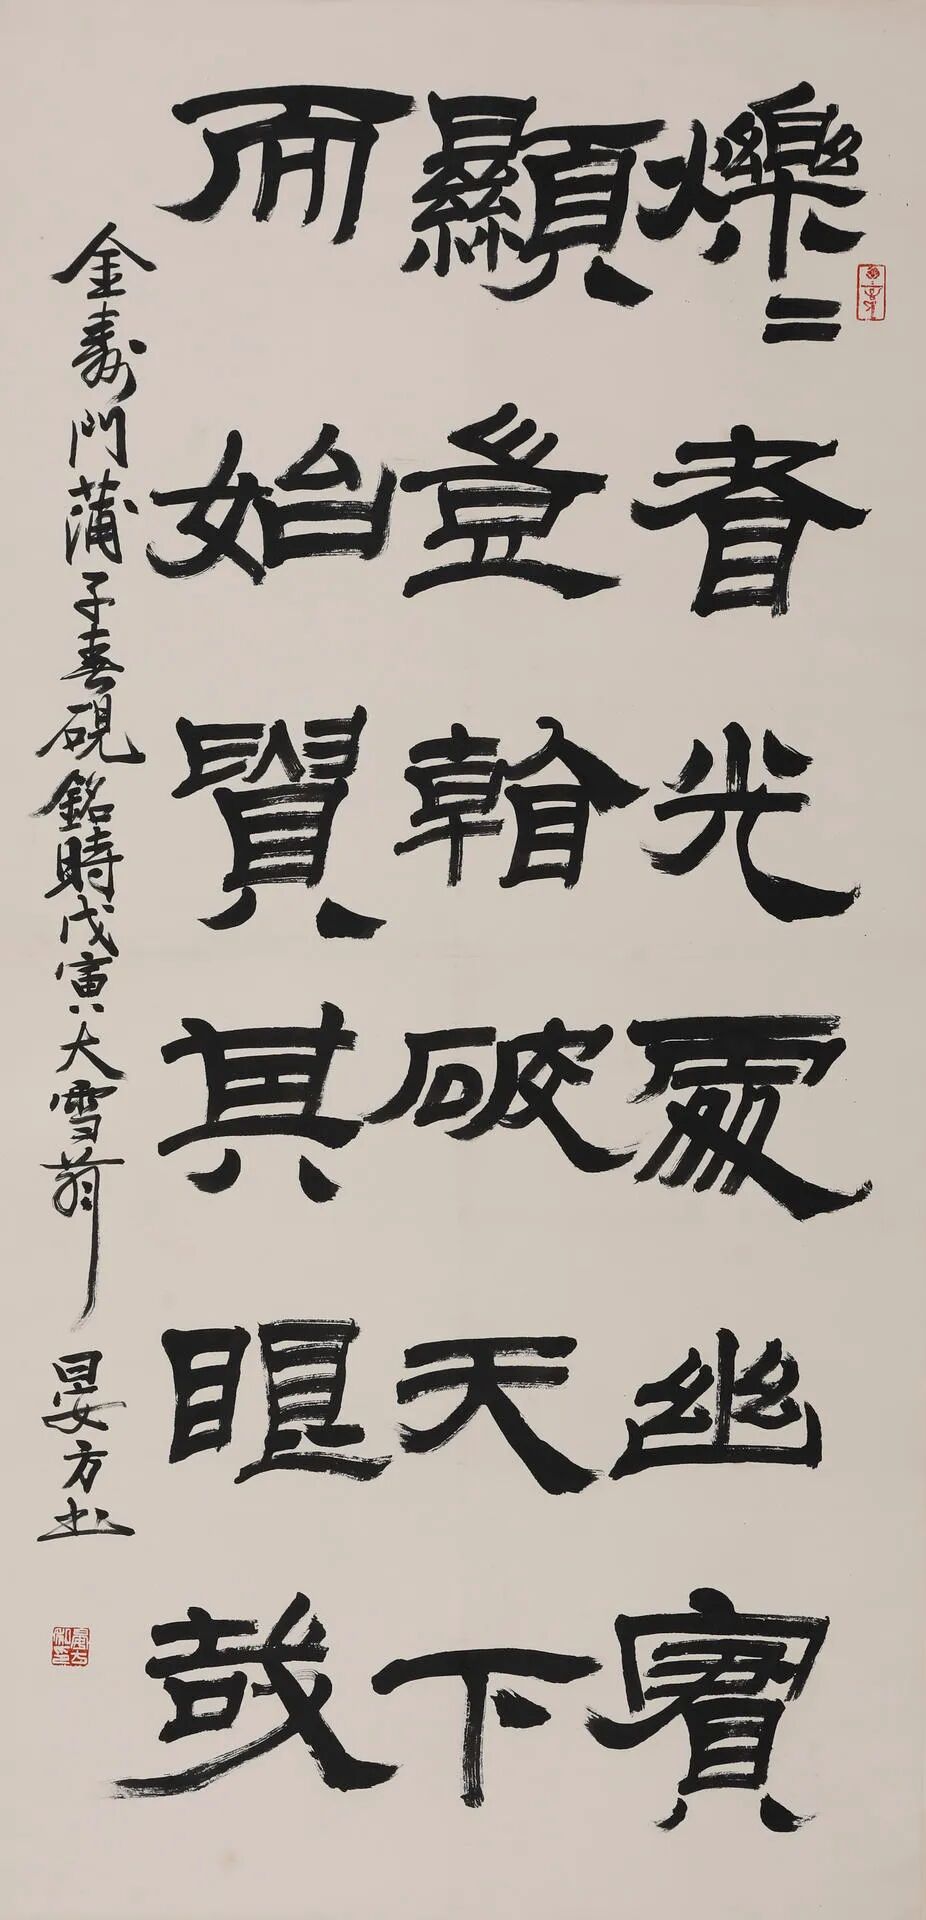 爍二者光處幽實
顯登破天下
而始賢其眼哉
金壽門蒲子喜硯銘時戊寅大雪前晏方书